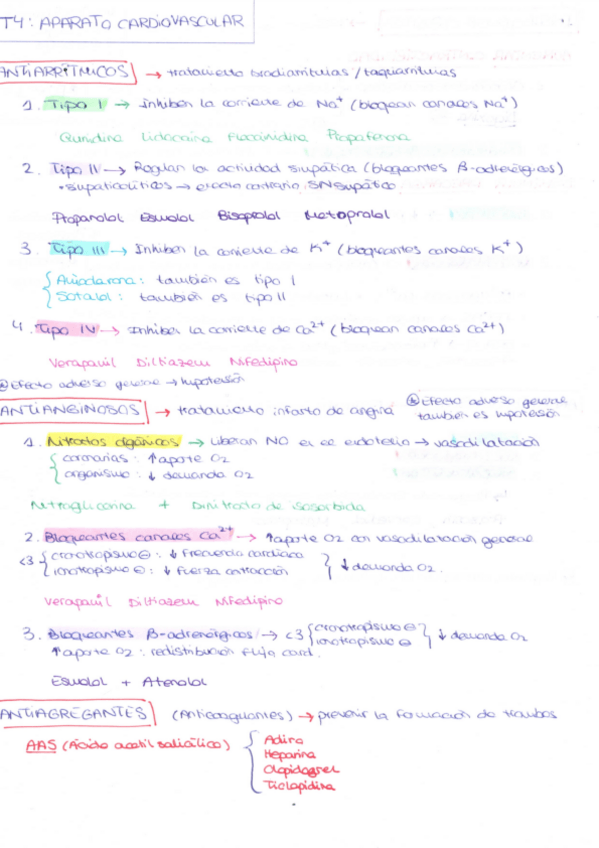 T4: APARATO CARDIOVASCULAR
ANTIARRÍTMICOS → tratamiento bradiarritmias / taquiarritmias
1. Tipo I → Inhiben la corriente de Na⁺ (bloquean canales Na⁺)
Quinidina Lidocaína Flecainidina Propafenona
2. Tipo II → Regulan la actividad simpática (bloqueantes β-adrenérgicos)
• simpaticolíticos → efecto contrario SN simpático
Propanolol Esmolol Bisoprolol Metoprolol
3. Tipo III → Inhiben la corriente de K⁺ (bloqueantes canales K⁺)
{ Amiodarona: también es tipo I
Sotalol: también es tipo II
4. Tipo IV → Inhiben la corriente de Ca²⁺ (bloquean canales Ca²⁺)
Verapamil Diltiazem Nifedipino
Efecto adverso general → hipotensión
ANTIANGINOSOS → tratamiento infarto de angina
Efecto adverso general también es hipotensión
1. Nitratos orgánicos → Liberan NO en el endotelio → vasodilatación
{ coronarias: ↑ aporte O2
organismo: ↓ demanda O2
Nitroglicerina + Dinitrato de isosorbida
2. Bloqueantes canales Ca²⁺ → ↑ aporte O2 con vasodilatación general
<3 { cronotropismo ⊖: ↓ Frecuencia cardíaca
ionotropismo ⊖: ↓ Fuerza contracción } ↓ demanda O2.
Verapamil Diltiazem Nifedipino
3. Bloqueantes β-adrenérgicos → <3 { cronotropismo ⊖
ionotropismo ⊖ } ↓ demanda O2
↑ aporte O2: redistribución flujo card.
Esmolol + Atenolol
ANTIAGREGANTES (Anticoagulantes) → prevenir la formación de trombos
AAS (Ácido acetil salicílico) { Adiro
Heparina
Clopidogrel
Ticlopidina